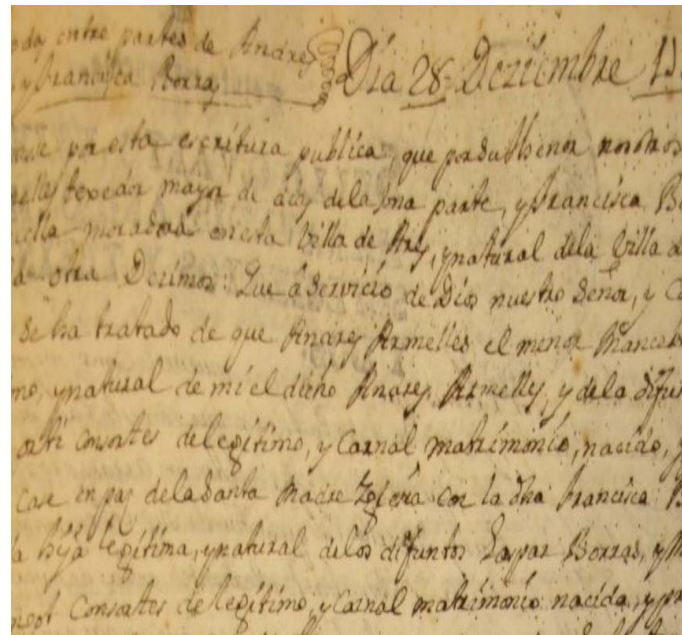 entre partes de Andres
y Francisca Borras
Dia 28 Deziembre
por esta escritura publica, que
texedor mayor de dias dela una parte, y Francisca
moradora en esta Villa de Ares, y natural dela Villa
otra Dezimos: Que â servicio de Dios nuestro Señor, y
se ha tratado de que Andres Armelles el menor Mancebo
y natural de mi el dicho Andres Armelles, y dela
Consortes de legitimo, y Carnal matrimonio, nacido,
Case en paz dela Santa Madre Iglesia con la dha Francisca
hija legitima, y natural delos difuntos Gaspar Borras, y
Consortes de legitimo, y Carnal matrimonio nacida, y